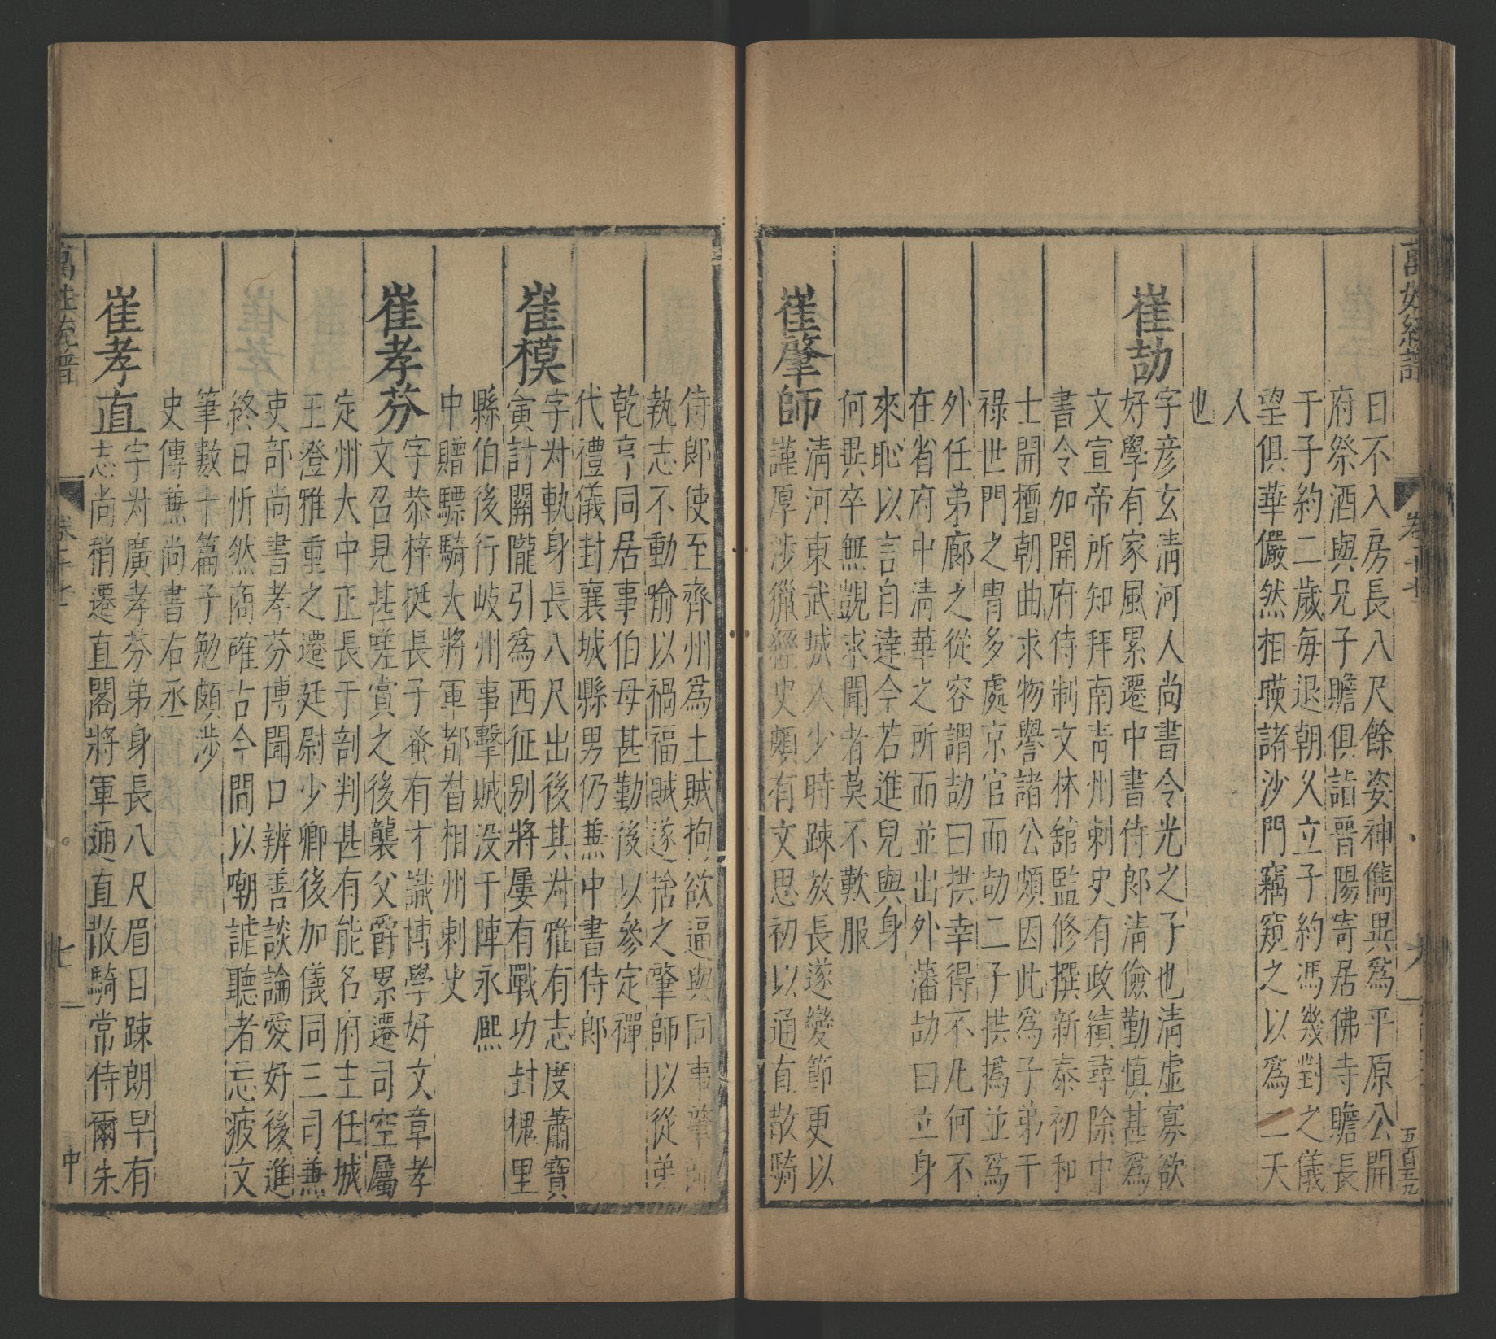 萬姓統譜
卷十七
日不入房長八尺餘姿神儁異為平原公開
府祭酒與兄子瞻俱詣晉陽寄居佛寺瞻長
于子約二歲每退朝父立子約馮幾對之儀
望俱華儼然相暎諸沙門竊窺之以為二天
人
也
崔劼
字彦玄清河人尚書令光之子也清虛寡欲
好學有家風累遷中書侍郎清儉勤慎甚為
文宣帝所知拜南青州刺史有政績尋除中
書令加開府侍制文林舘監修撰新泰初和
士開檀朝曲求物譽諸公頗因此為子弟干
祿世門之冑多處京官而劼二子拱撝並為
外任弟廓之從容謂劼曰拱幸得不凡何不
在省府中清華之所而並出外藩劼曰立身
來恥以言自達今若進兒與身
何異卒無覬求聞者莫不歎服
崔肇師
清河東武城人少時踈放長遂變節更以
謹厚涉獵經史頗有文思初以通直散騎
侍郎使至齊州為土賊拘欲逼與同事肇師
執志不動喻以禍福賊遂捨之肇師以從弟
乾亨同居事伯母甚勤後以參定禪
代禮儀封襄城縣男仍兼中書侍郎
崔模
字叔軌身長八尺出後其叔雅有志度蕭寶
寅討關隴引為西征别將屢有戰功封槐里
縣伯後行岐州事擊賊没于陣永熈
中贈驃騎大將軍都督相州刺史
崔孝芬
字恭梓挺長子蚤有才識博學好文章孝
文召見甚嗟賞之後襲父爵累遷司空屬
定州大中正長于剖判甚有能名府主任城
王澄雅重之遷廷尉少卿後加儀同三司兼
吏部尚書孝芬博聞口辨善談論愛好後進
終日忻然商確古今間以嘲謔聽者忘疲文
筆數十篇子勉頗涉
史傳兼尚書右丞
崔孝直
字叔廣孝芬弟身長八尺眉目踈朗早有
志尚稍遷直閣將軍通直散騎常侍爾朱
萬姓統譜
卷十七
七
中